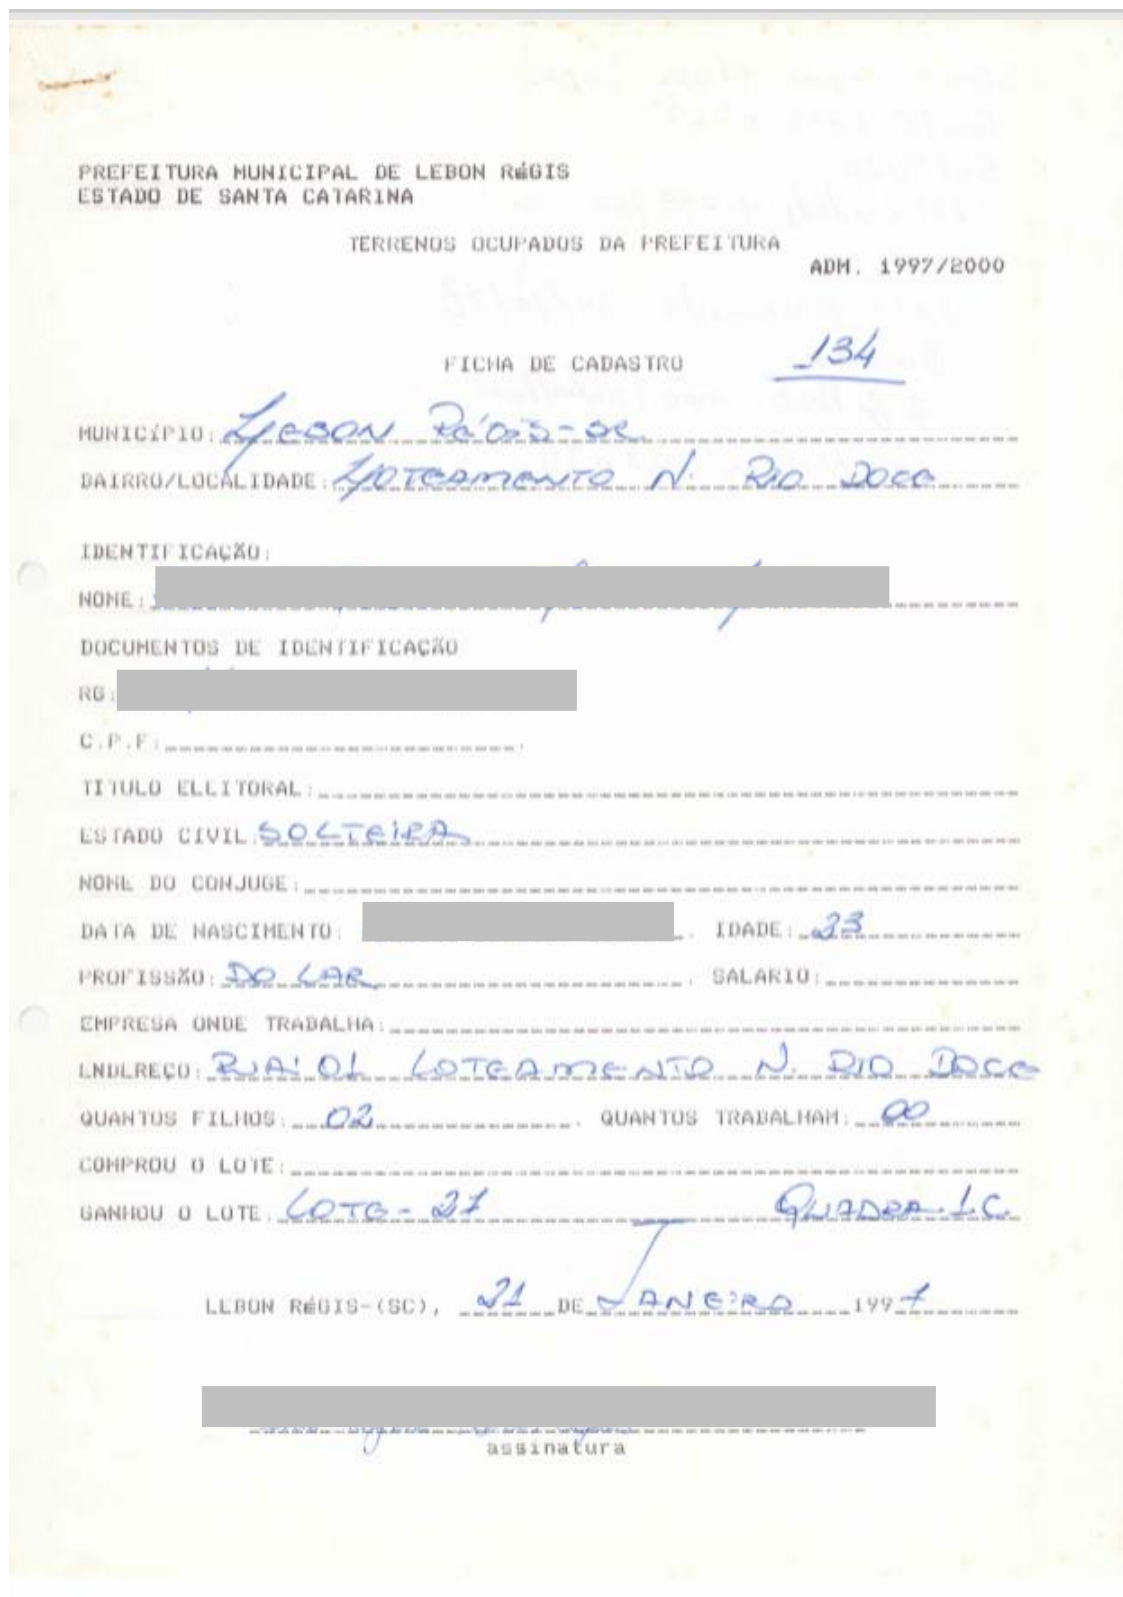 PREFEITURA MUNICIPAL DE LEBON RéGIS
ESTADO DE SANTA CATARINA
TERRENOS OCUPADOS DA PREFEITURA
ADM. 1997/2000
FICHA DE CADASTRO 134
MUNICíPIO: LEBON RÉGIS-SC
BAIRRO/LOCALIDADE: LOTEAMENTO N. RIO DOCE
IDENTIFICAÇÃO:
NOME:
DOCUMENTOS DE IDENTIFICAÇÃO
RG:
C.P.F:
TITULO ELEITORAL:
ESTADO CIVIL: SOLTEIRA
NOME DO CONJUGE:
DATA DE NASCIMENTO: IDADE: 23
PROFISSÃO: DO LAR. SALARIO:
EMPRESA ONDE TRABALHA:
ENDEREÇO: RUA: 01 LOTEAMENTO N. RIO DOCE
QUANTOS FILHOS: 02. QUANTOS TRABALHAM: 00
COMPROU O LOTE:
GANHOU O LOTE: LOTE - 27 QUADRA 1C
LEBON RéGIS-(SC), 21 DE JANEIRO 1997
assinatura